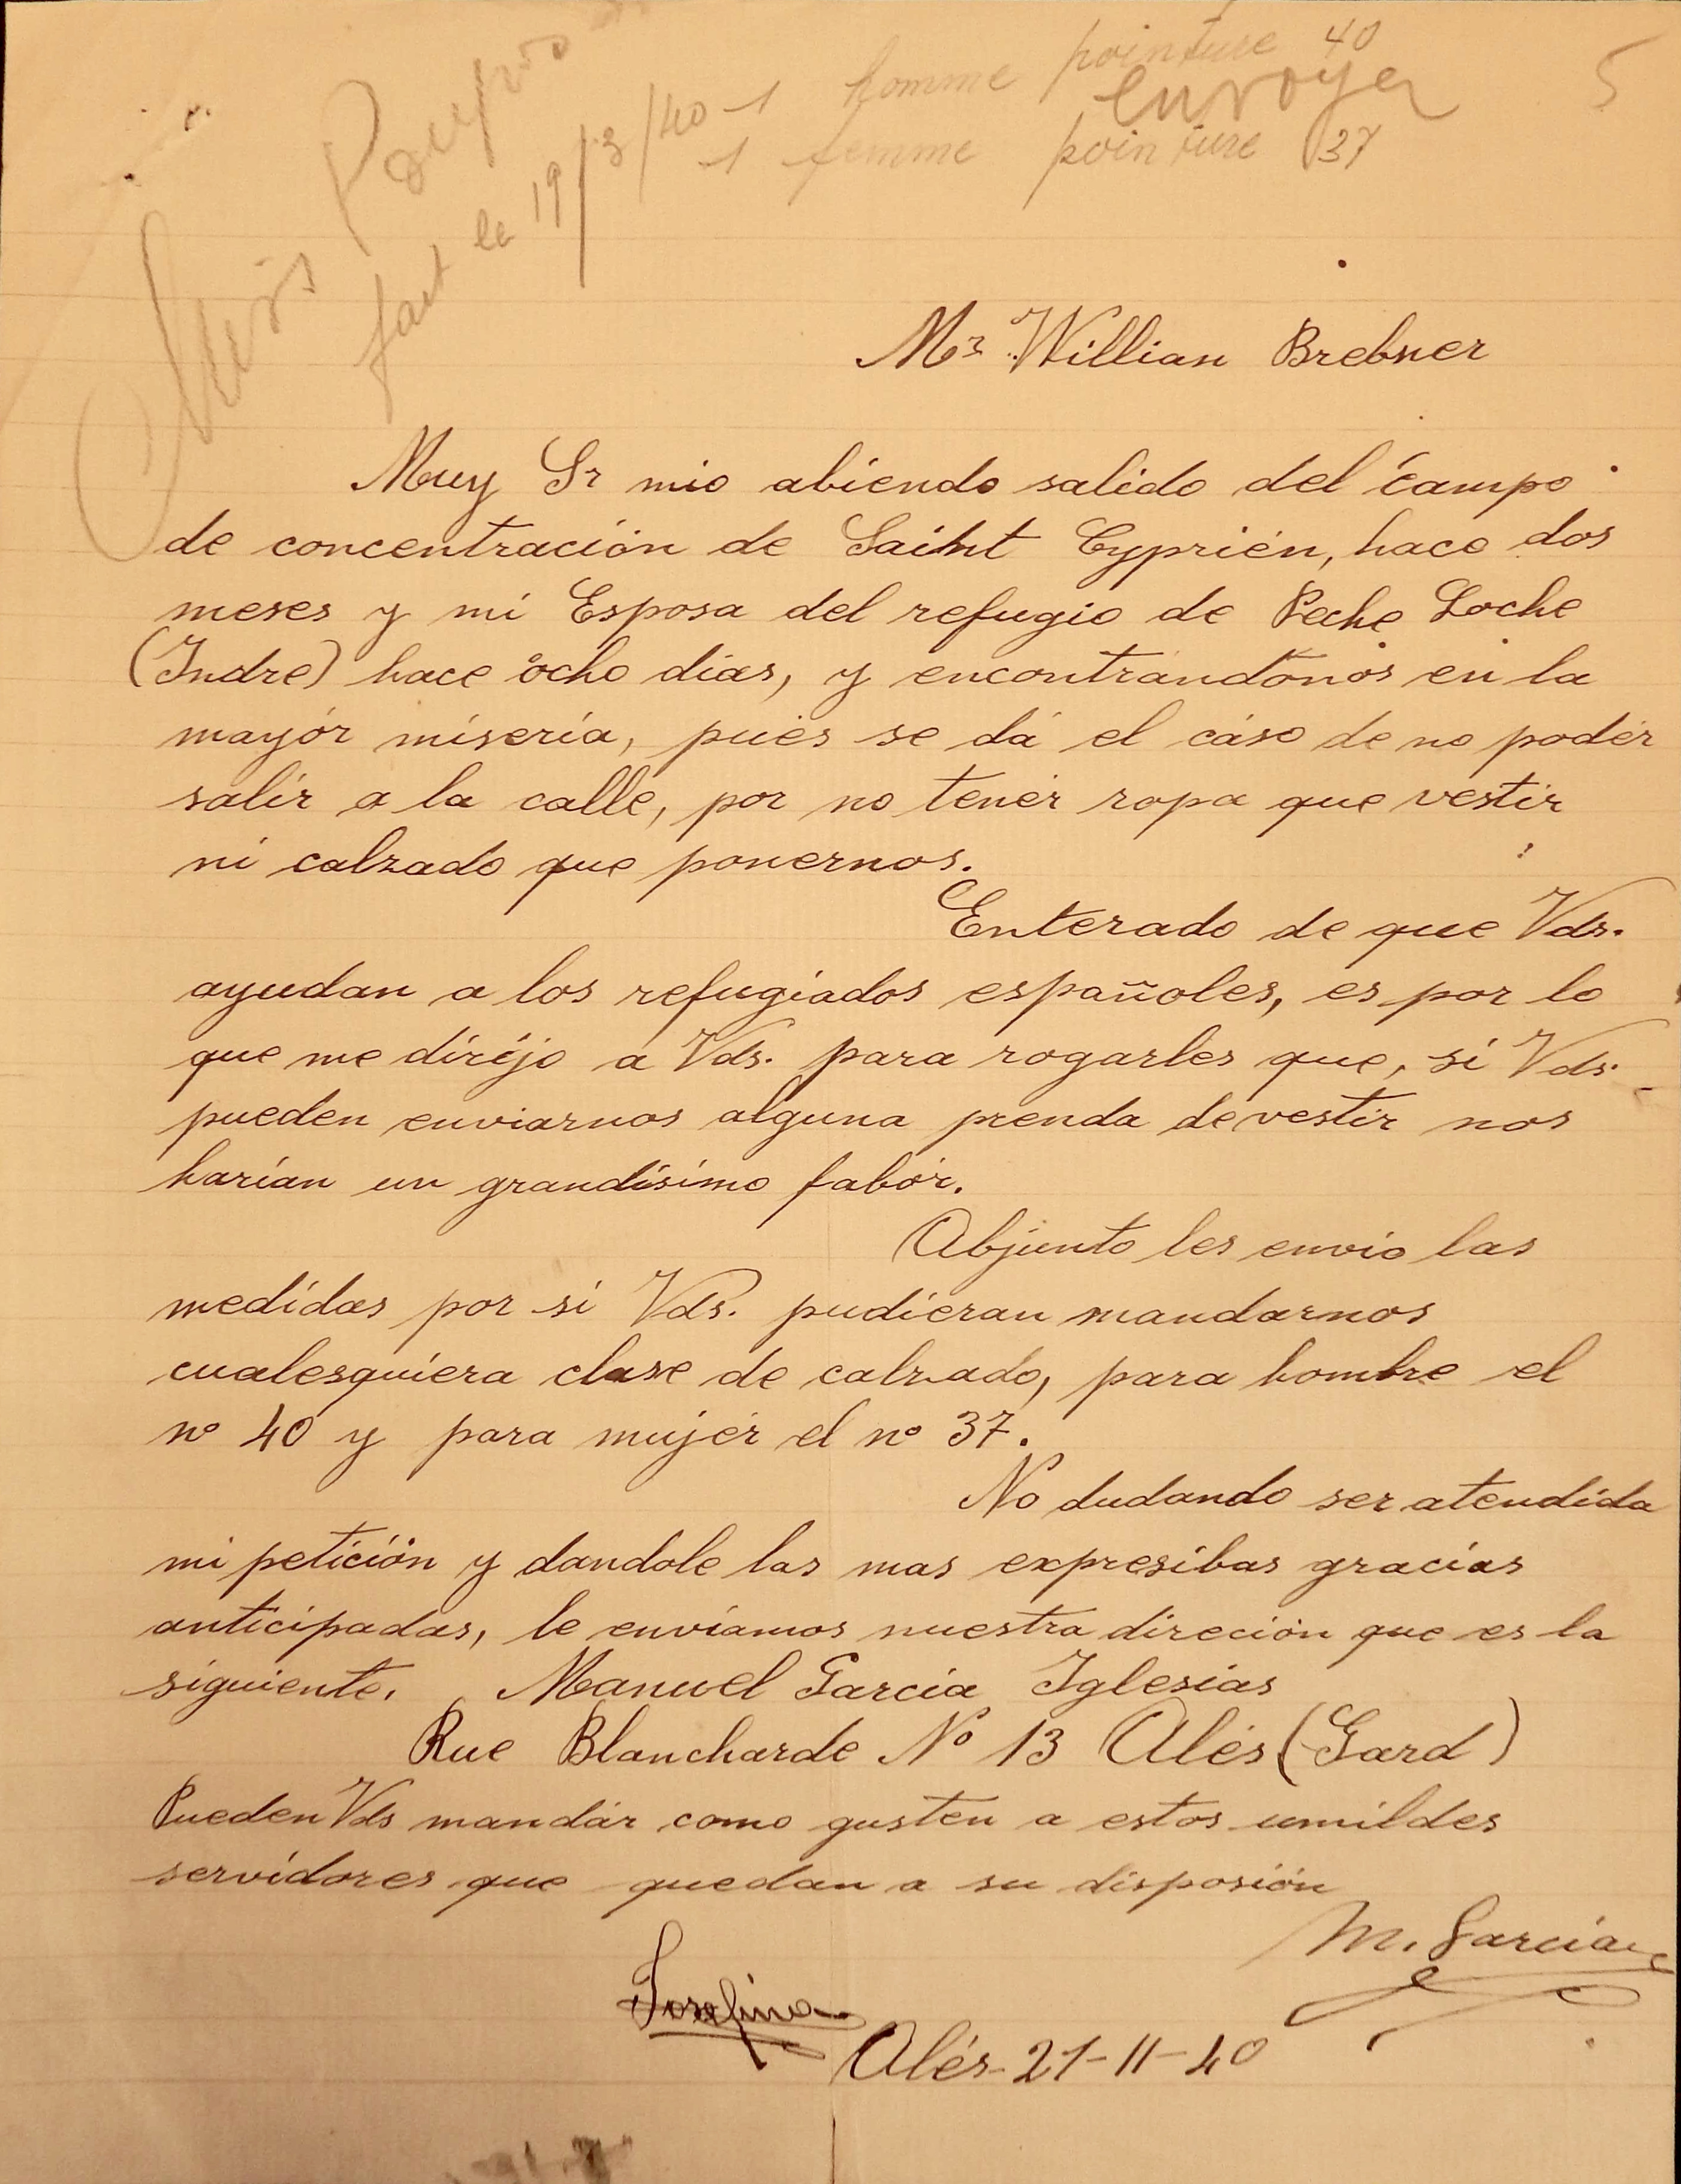 1 homme pointure 40
envoyer
1 femme pointure 37
5
fait le 19/3/40
Mr Willian Brebner
Muy Sr mio abiendo salido del campo
de concentración de Saint Cyprién, hace dos
meses y mi Esposa del refugio de Peche Loche
(Indre) hace ocho dias, y encontrandonos en la
mayór miseria, pues se dá el cáso de no podér
salir a la calle, por no tenér ropa que vestir
ni calzado que ponernos.
Enterado de que Vds.
ayudan a los refugiados españoles, es por lo
que me dirijo a Vds. para rogarles que, si Vds.
pueden enviarnos alguna prenda de vestir nos
harian un grandisimo fabór.
Abjunto les envio las
medidas por si Vds. pudieran mandarnos
cualesquiera clase de calzado, para hombre el
nº 40 y para mujér el nº 37.
No dudando ser atendida
mi petición y dandole las mas expresibas gracias
anticipadas, le enviamos nuestra direción que es la
siguiente. Manuel Garcia Iglesias
Rue Blancharde Nº 13 Alés (Gard)
Pueden Vds mandár como gusten a estos umildes
servidores que quedan a su disposión
M. Garcia
Josefina
Alés-21-11-40